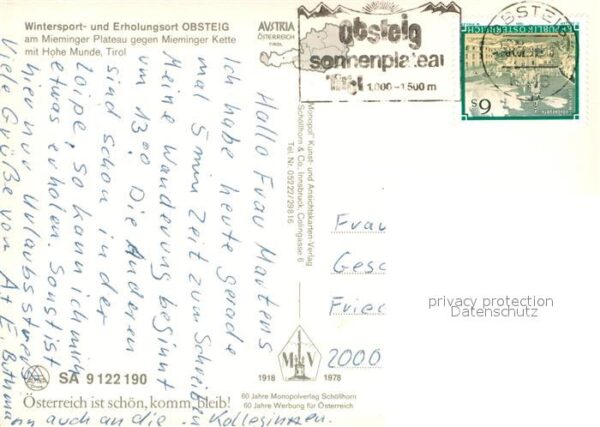 Wintersport- und Erholungsort OBSTEIG
am Mieminger Plateau gegen Mieminger Kette
mit Hohe Munde, Tirol
AVSTRIA
ÖSTERREICH
TIROL
Obsteig
sonnenplateau
Tirol 1.000-1.500 m
OBSTEIG
REPUBLIK ÖSTERREICH
S 6
Hallo Frau Martens
Ich habe heute gerade
mal 5 min Zeit zum Schreiben
Meine Wanderung beginnt
um 13.00 Die Anderen
sind schon in der
Loipe, so kann ich mich
etwas erholen. Sonst ist
hier nur Urlaubsstress
Viele Grüße von A + E.
auch an die Kolleginnen.
"Monopol" Kunst- und Ansichtskarten-Verlag
Schöllhorn & Co, Innsbruck, Colingasse 6
Tel. Nr. 05222/29816
Frau
Gesc
Fried
2000
privacy protection
Datenschutz
M V
1918 1978
60 Jahre Monopolverlag Schöllhorn
60 Jahre Werbung für Österreich
SA 9 122 190
Österreich ist schön, komm, bleib!